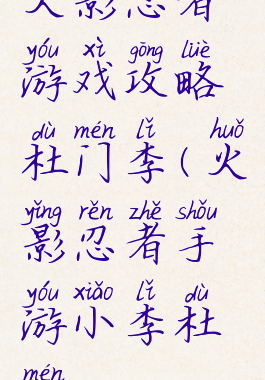 火影忍者
yóu xì gōng lüè
游戏攻略
dù mén lǐ huǒ
杜门李(火
yǐng rěn zhě shǒu
影忍者手
yóu xiǎo lǐ dù
游小李杜
mén